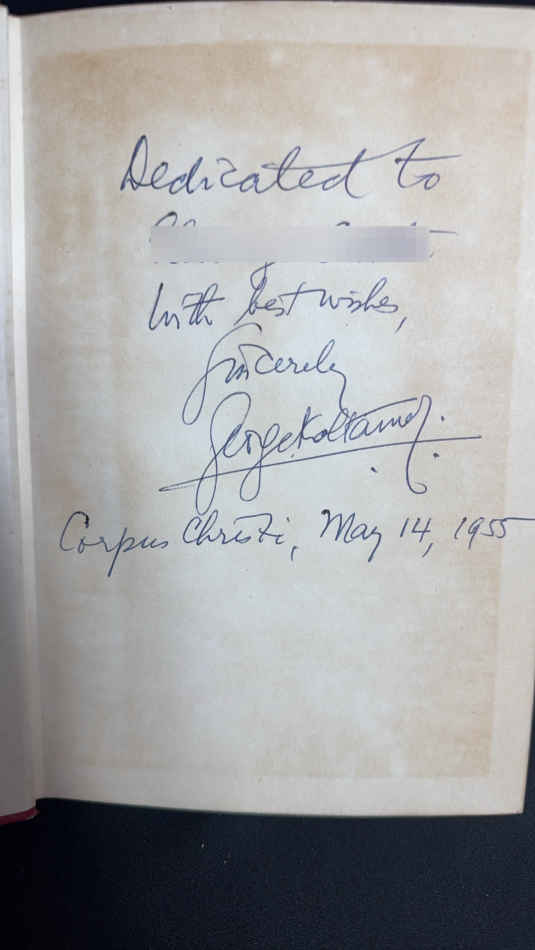 Dedicated to
With best wishes,
Sincerely
George Koltanowski.
Corpus Christi, May 14, 1955